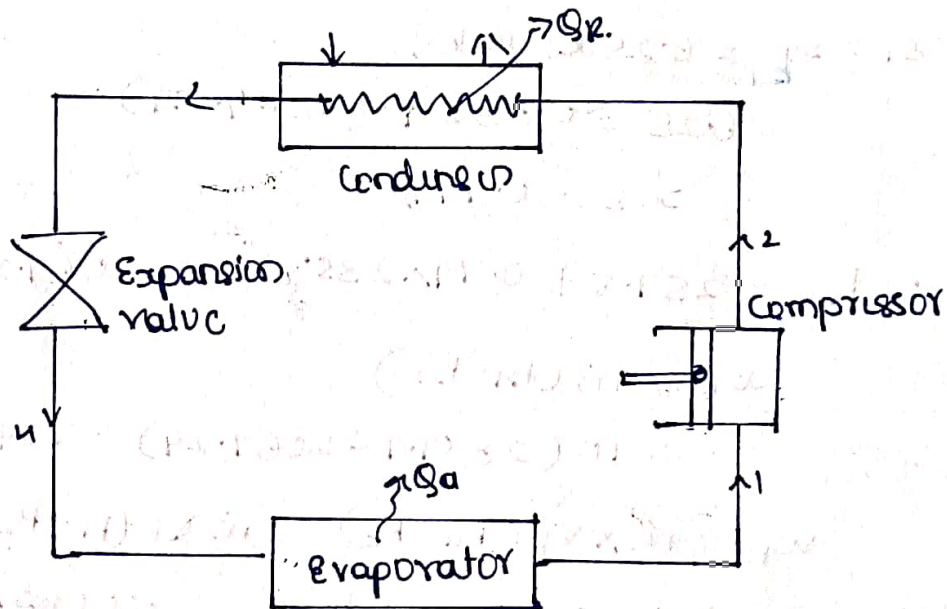 QR.
Condenser
Expansion
valve
2
Compressor
4
1
Qa
Evaporator